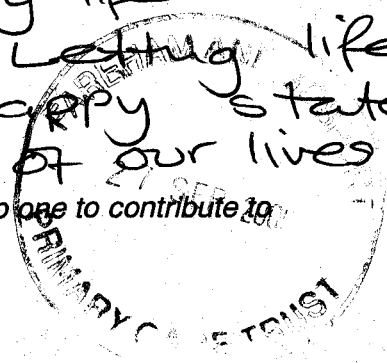 life
Letting life
appy state
of our lives
one to contribute to
27 SEP 200
PRIMARY CARE TRUST